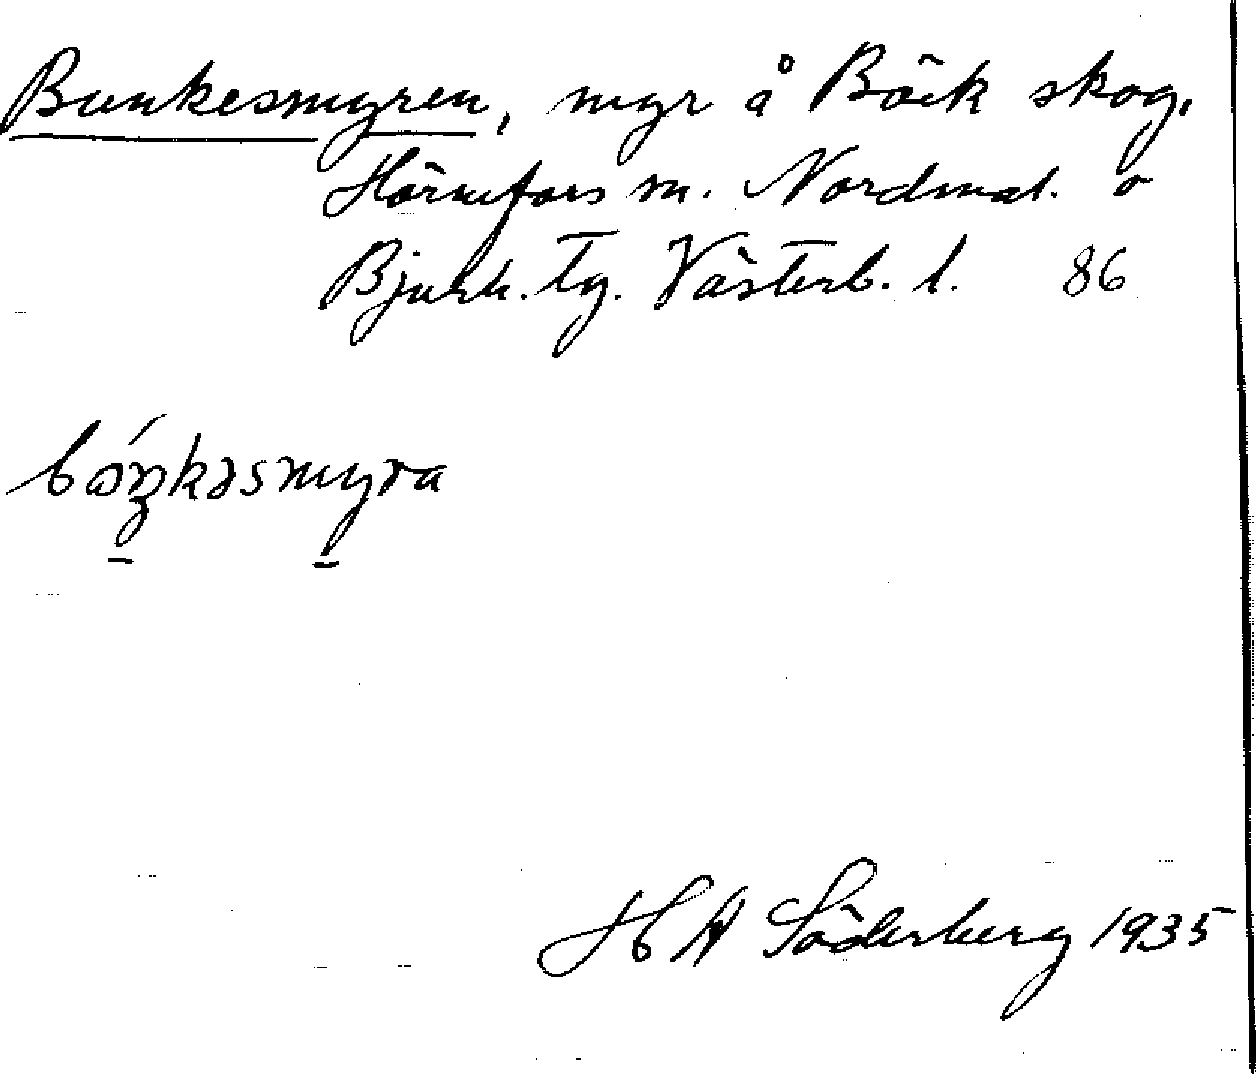 Bunkesmyren, myr å Böck skog,
Hörnefors sn. Nordmal. o
Bjurh. Tg. Västerb. l. 86
bɷ́ŋkəsmyra
H A Söderberg 1935